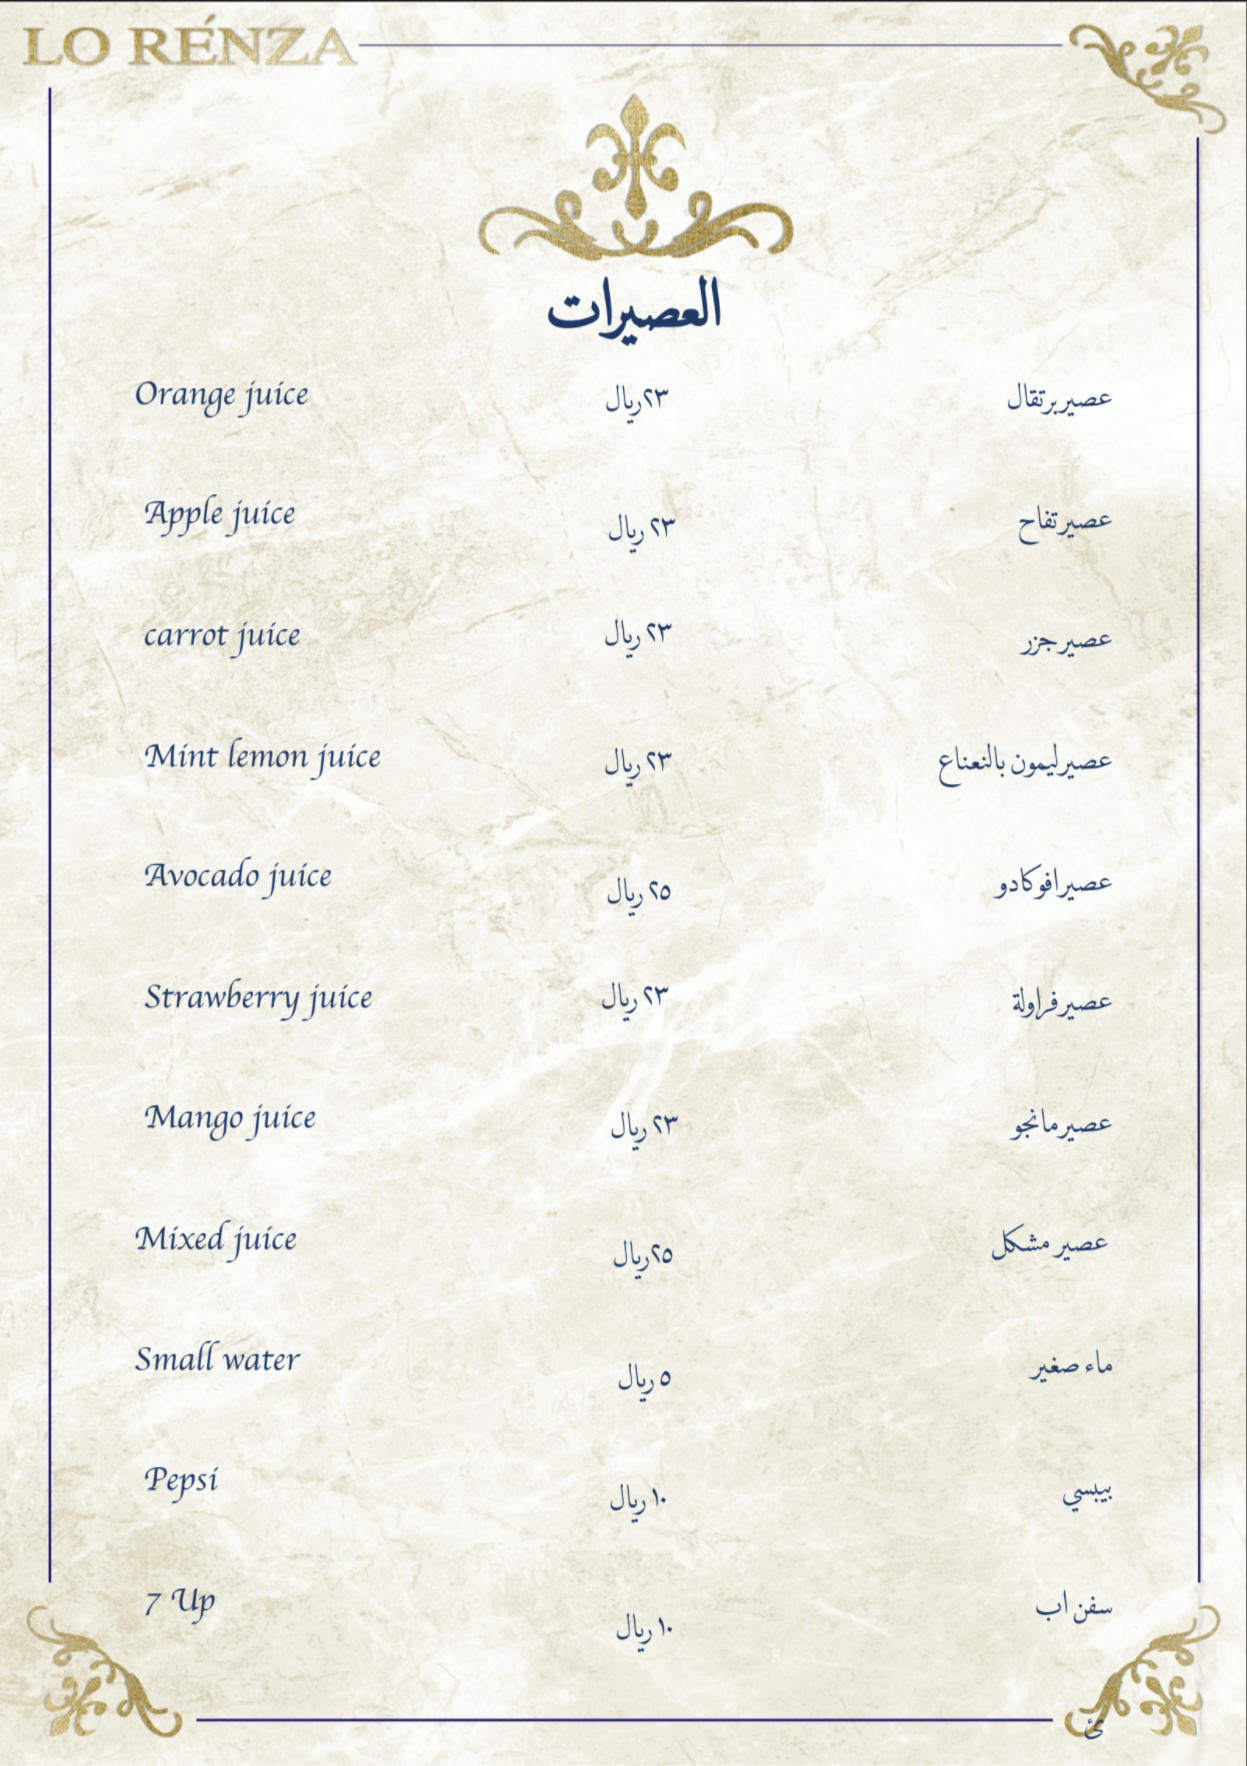 LO RÉNZA
العصيرات
Orange juice ٢٣ريال عصيربرتقال
Apple juice ٢٣ ريال عصيرتفاح
carrot juice ٢٣ ريال عصيرجزر
Mint lemon juice ٢٣ ريال عصيرليمون بالنعناع
Avocado juice ٢٥ ريال عصيرافوكادو
Strawberry juice ٢٣ ريال عصيرفراولة
Mango juice ٢٣ ريال عصيرمانجو
Mixed juice ٢٥ريال عصير مشكل
Small water ٥ ريال ماء صغير
Pepsi ١٠ ريال بيبسي
7 Up ١٠ ريال سفن اب
ئ